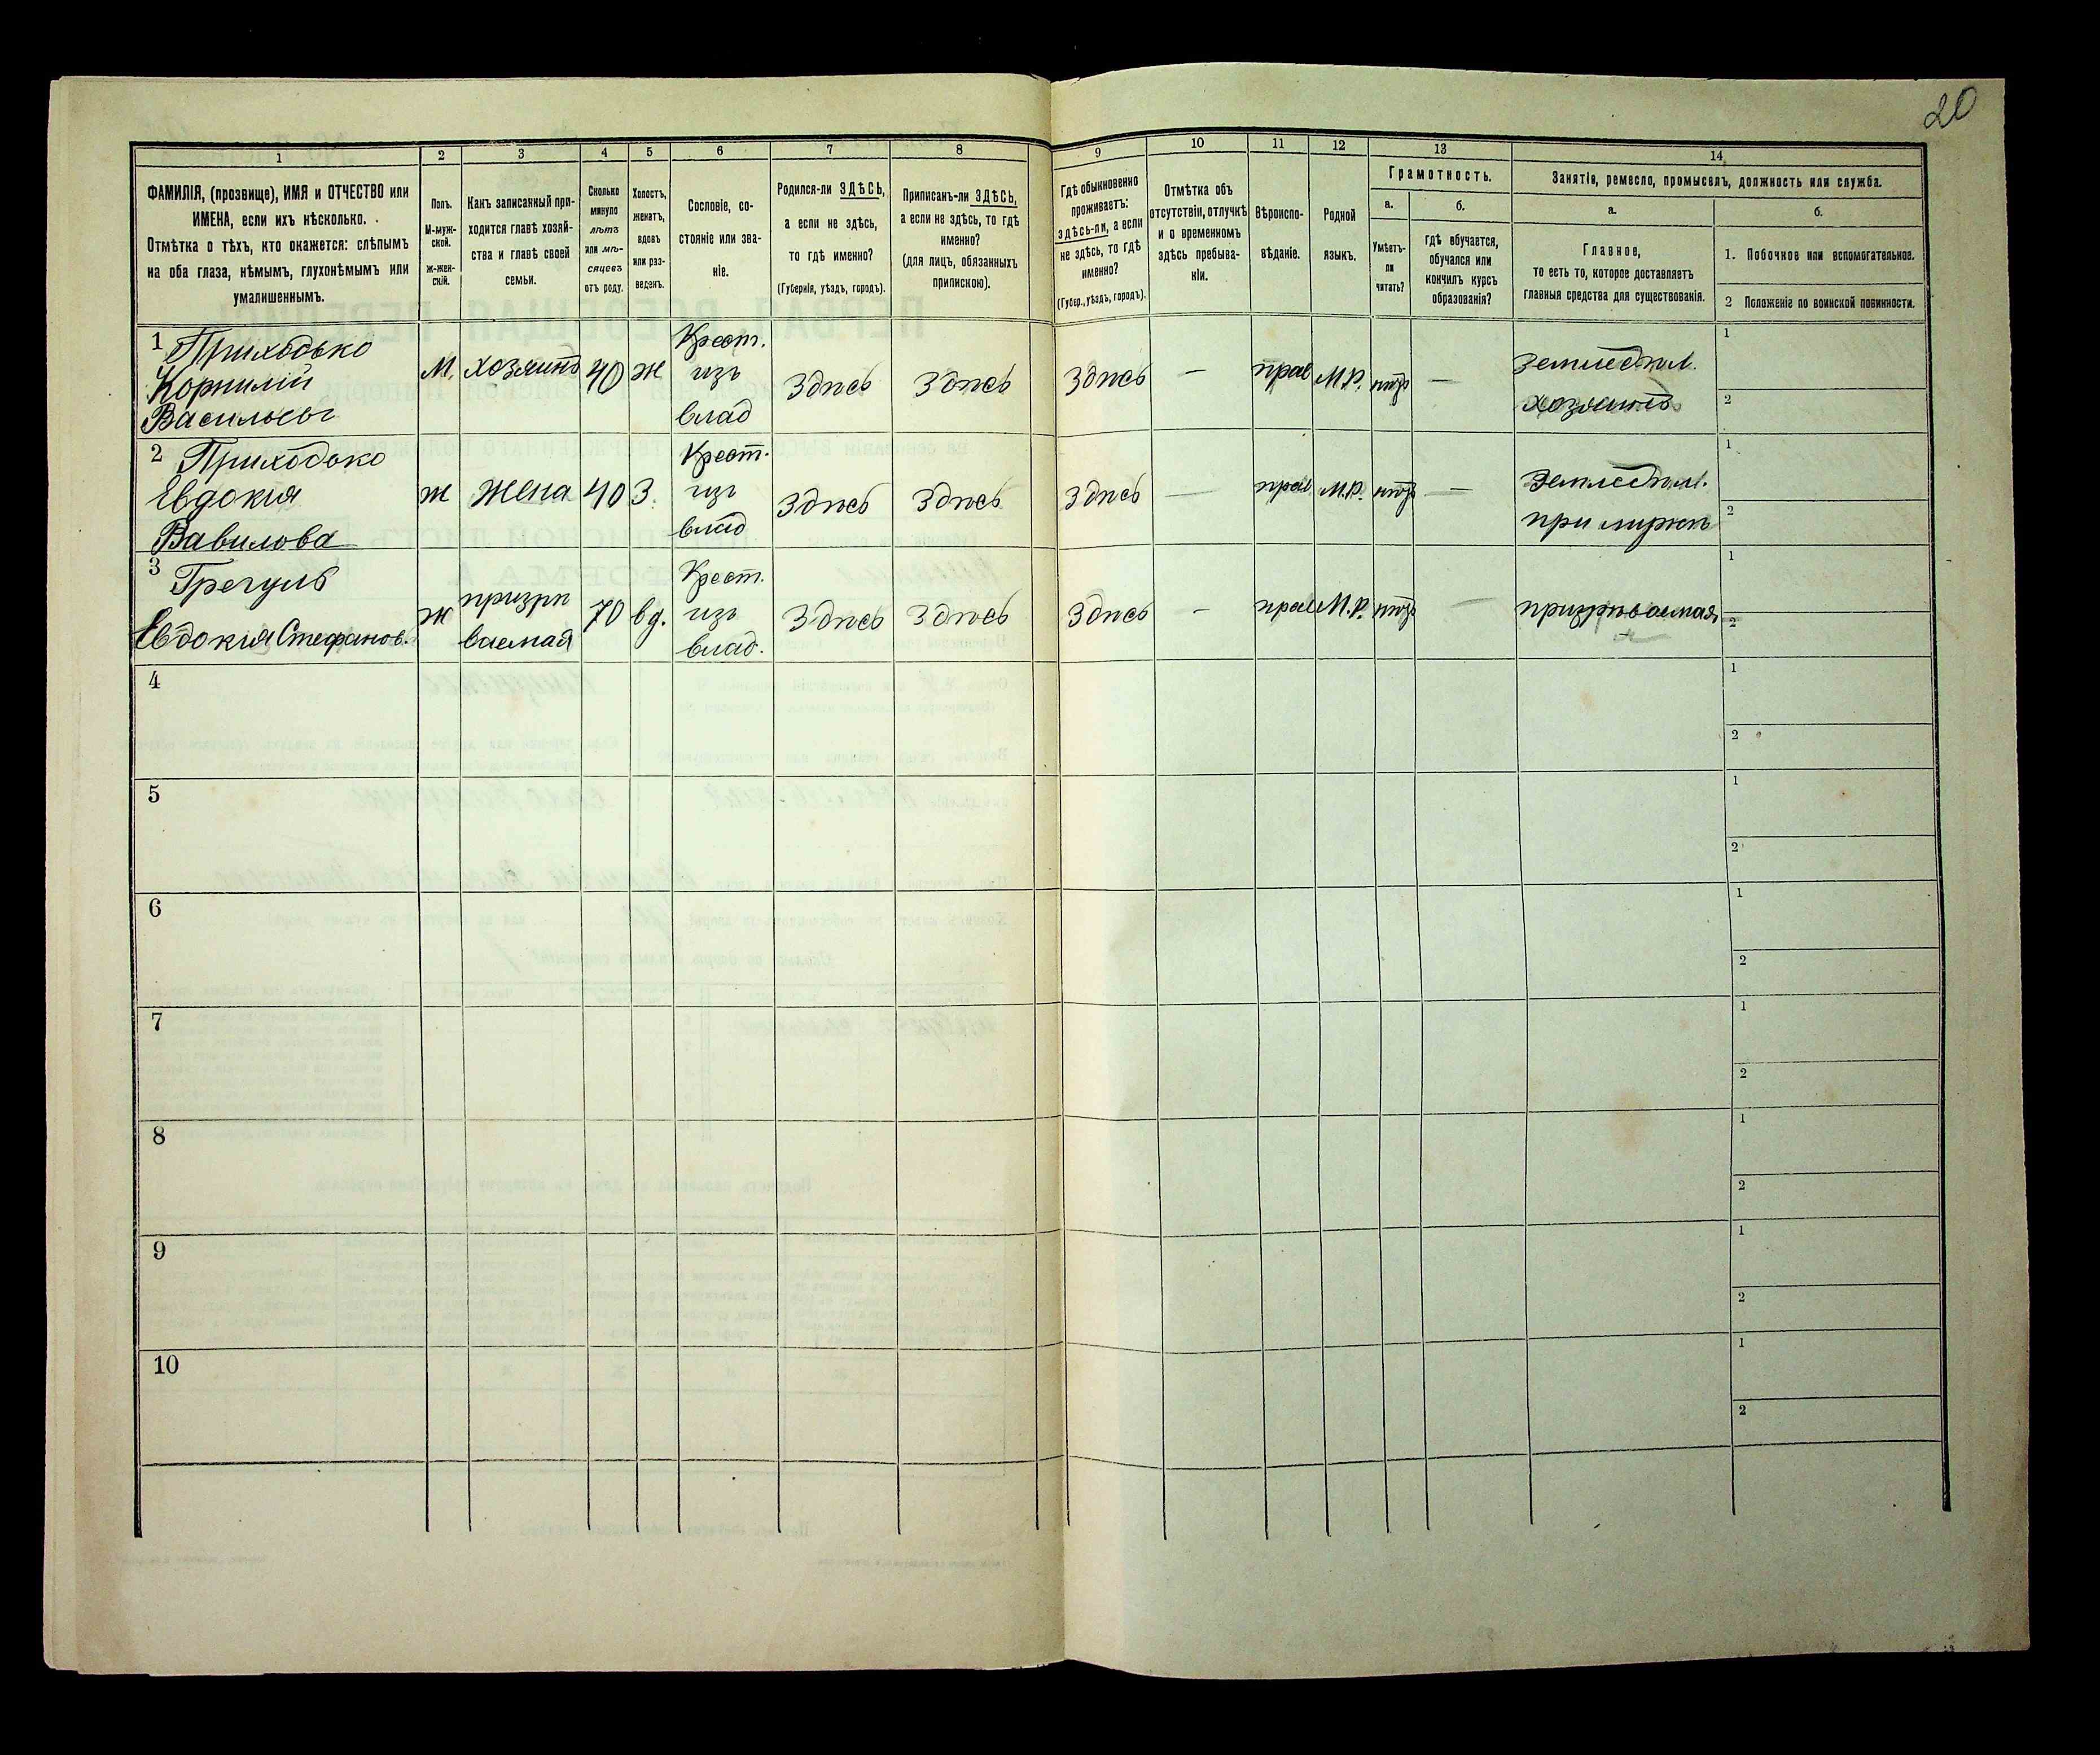 20
1
2
3
4
5
6
7
8
9
10
11
12
13
14
ФАМИЛІЯ, (прозвище), ИМЯ и ОТЧЕСТВО или
ИМЕНА, если ихъ нѣсколько.
Отмѣтка о тѣхъ, кто окажется: слѣпымъ
на оба глаза, нѣмымъ, глухонѣмымъ или
умалишеннымъ.
Полъ.
М-муж-
ской.
ж-жен-
скій.
Какъ записанный при-
ходится главѣ хозяй-
ства и главѣ своей
семьи.
Сколько
минуло
лѣтъ
или мѣ-
сяцевъ
отъ роду.
Холостъ,
женатъ,
вдовъ
или раз-
веденъ.
Сословіе, со-
стояніе или зва-
ніе.
Родился-ли ЗДѢСЬ,
а если не здѣсь,
то гдѣ именно?
(Губернія, уѣздъ, городъ).
Приписанъ-ли ЗДѢСЬ,
а если не здѣсь, то гдѣ
именно?
(для лицъ, обязанныхъ
припискою).
Гдѣ обыкновенно
проживаетъ:
здѣсь-ли, а если
не здѣсь, то гдѣ
именно?
(Губер., уѣздъ, городъ).
Отмѣтка объ
отсутствіи, отлучкѣ
и о временномъ
здѣсь пребыва-
ніи.
Вѣроиспо-
вѣданіе.
Родной
языкъ.
Грамотность.
а.
Умѣетъ-
ли
читать?
б.
гдѣ обучается,
обучался или
кончилъ курсъ
образованія?
Занятіе, ремесло, промыселъ, должность или служба.
а.
Главное,
то есть то, которое доставляетъ
главныя средства для существованія.
б.
1. Побочное или вспомогательное.
2 Положеніе по воинской повинности.
1 Приходько
Корнилій
Васильевъ
М.
хозяинъ
40
ж
Крест.
изъ
влад
Здѣсь
Здѣсь
Здѣсь
—
прав
М.Р.
нѣтъ
—
Земледѣл.
хозяинъ
1
2
2 Приходько
Евдокія
Вавилова
ж
жена
40
З.
Крест.
изъ
влад
Здѣсь
Здѣсь
Здѣсь
—
прав
М.Р.
нѣтъ
—
Земледѣл.
при мужѣ
1
2
3 Грегуль
Евдокія Стефанов.
ж
призрѣ
ваемая
70
вд.
Крест.
изъ
влад.
Здѣсь
Здѣсь
Здѣсь
—
прав
М.Р.
нѣтъ
—
призрѣваемая
1
2
4
1
2
5
1
2
6
1
2
7
1
2
8
1
2
9
1
2
10
1
2